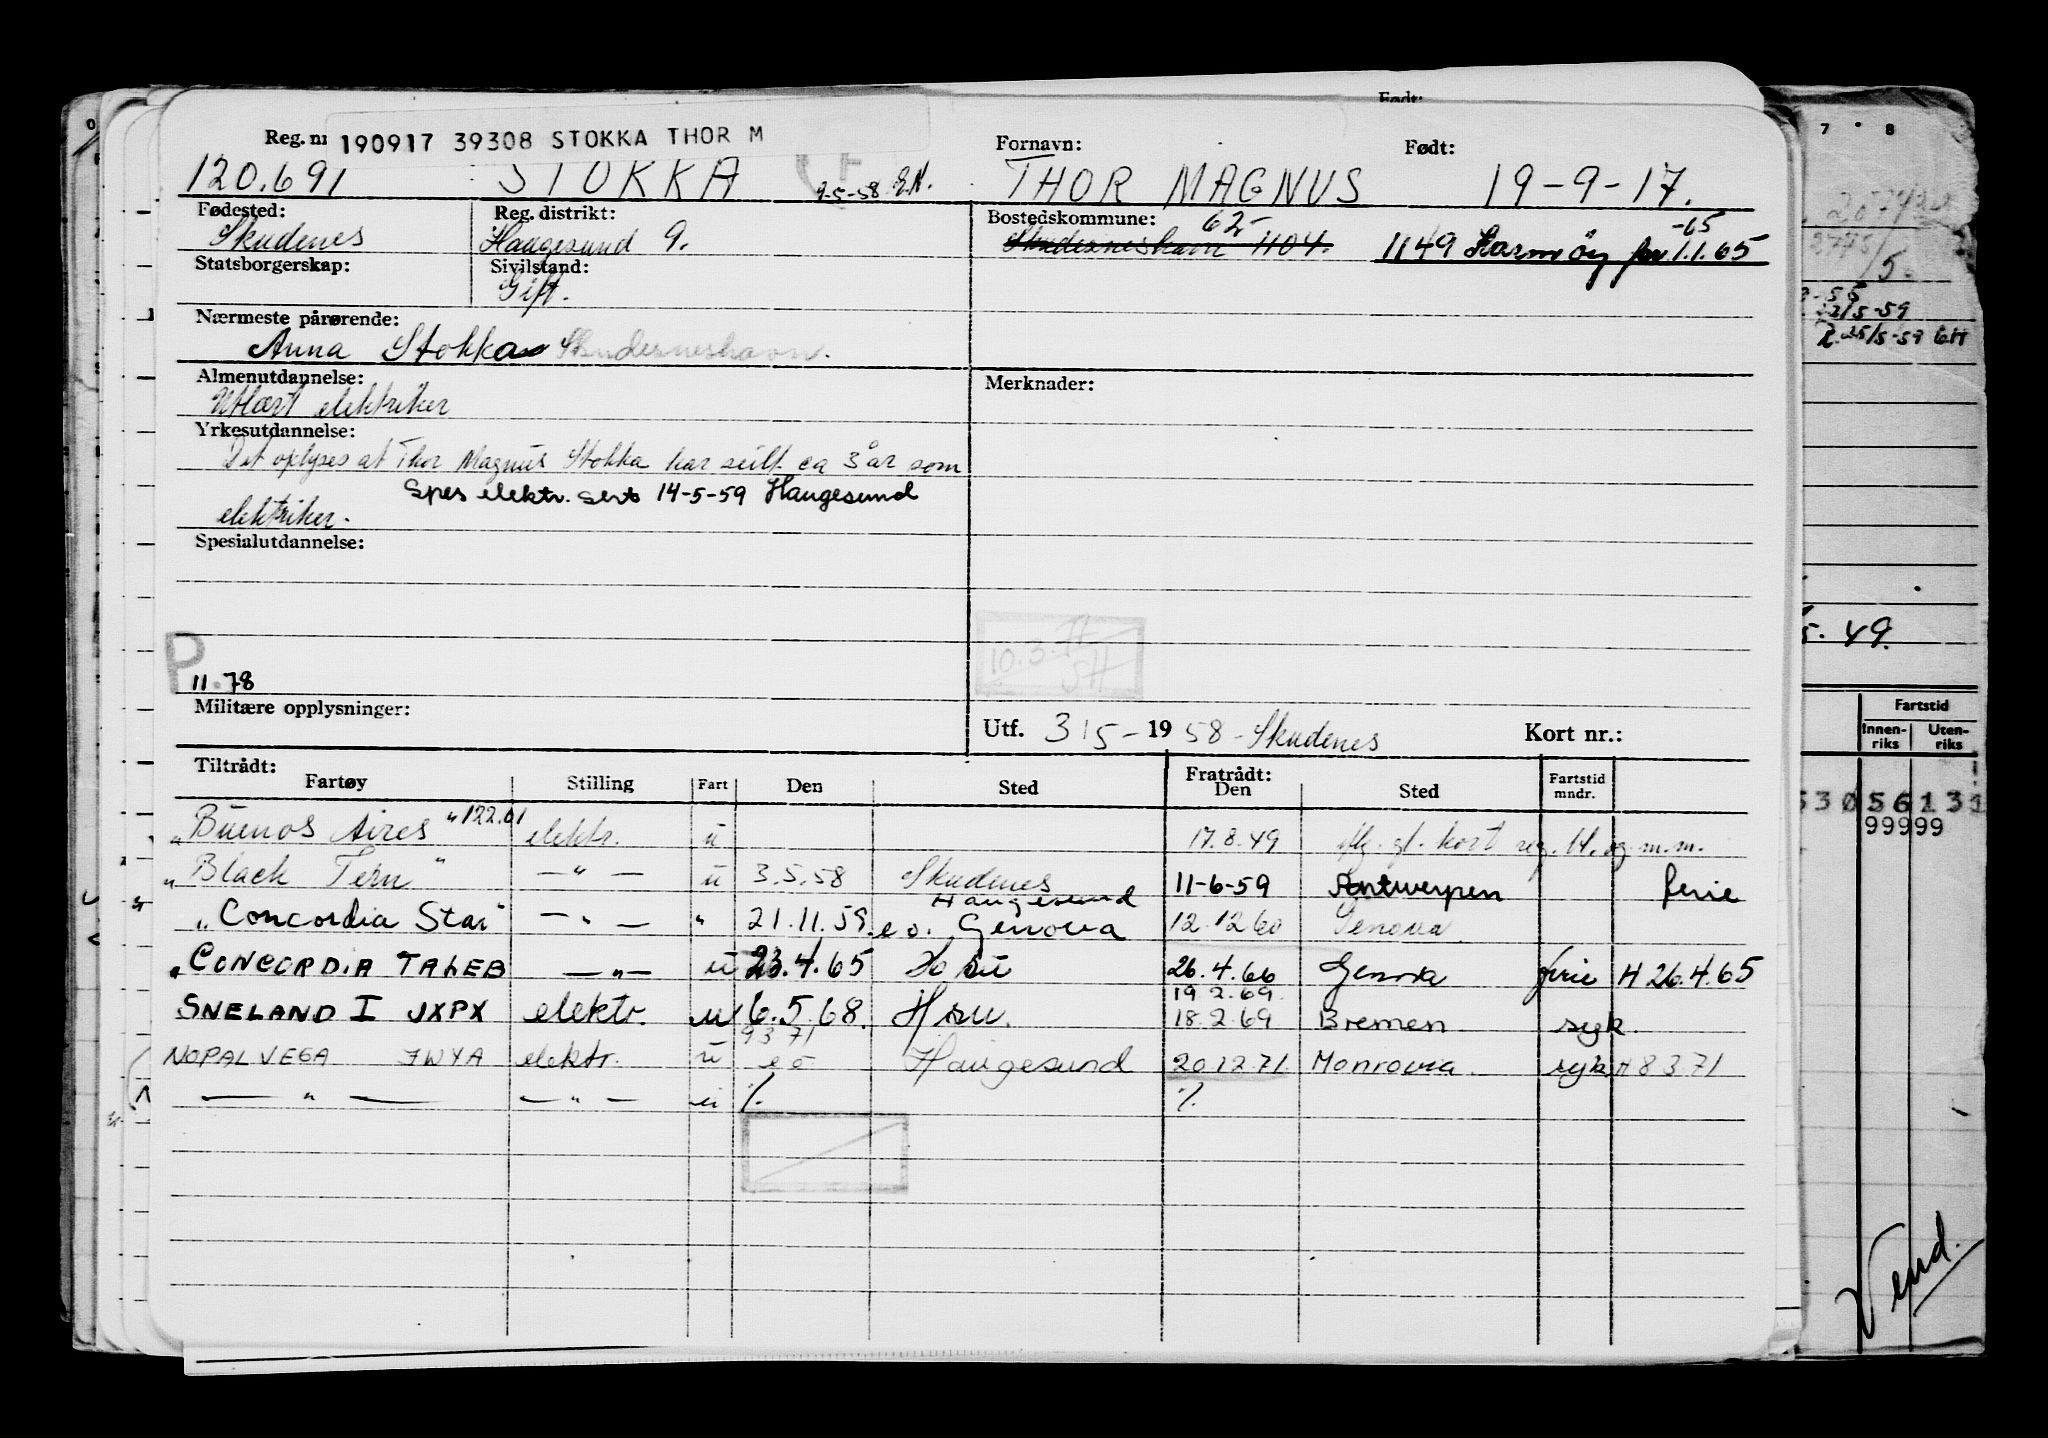 Født:
Reg. nr 190917 39308 STOKKA THOR M
Fornavn: Født:
120.691 STOKKA 9-5-58 E.N. THOR MAGNUS 19-9-17.
Fødested: Reg. distrikt: Bostedskommune: 62- -65
Skudenes Haugesund 9. Skudesneshavn 1104. 1149 Karmöy pr 1.1.65
Statsborgerskap: Sivilstand:
Gift.
Nærmeste pårørende:
Anna Stokka Skudesneshavn.
Almenutdannelse: Merknader:
Utlært elektriker
Yrkesutdannelse:
Det oplyses at Thor Magnus Stokka har seilt ca 3 år som
Spes elektr. sert 14-5-59 Haugesund
elektriker.
Spesialutdannelse:
P
10.3.72
SH
11.78
Militære opplysninger:
Utf. 3/5- 1958 - Skudenes Kort nr.:
Tiltrådt: Fratrådt:
Fartøy Stilling Fart Den Sted Den Sted Fartstid mndr.
"Buenos Aires" 122.01 elektr. u 17.8.49 iflg. gl. kort reg. bl. og m.m.
"Black Tern" —"— u 3.5.58 Skudenes 11-6-59 Antwerpen ferie
Haugesund
"Concordia Star" —"— " 21.11.59. e.o. Genova 12.12.60 Genova
"CONCORDIA TALEB —"— u 23.4.65 Hosu 26.4.66 Genova ferie H 26.4.65
19.2.69.
SNELAND I JXPX elektr. u 6.5.68. Hsu. 18.2.69 Bremen syk.
9371
NOPAL VEGA JWYA elektr. u eo Haugesund 20.12.71. Monrovia. syk H 8371
— " — —"— u ./. ./.
7 8
22/5-59
R. 25/5-59 GH
5. 49.
Fartstid
Innen-riks Uten-riks
53056131
99999
Vend.